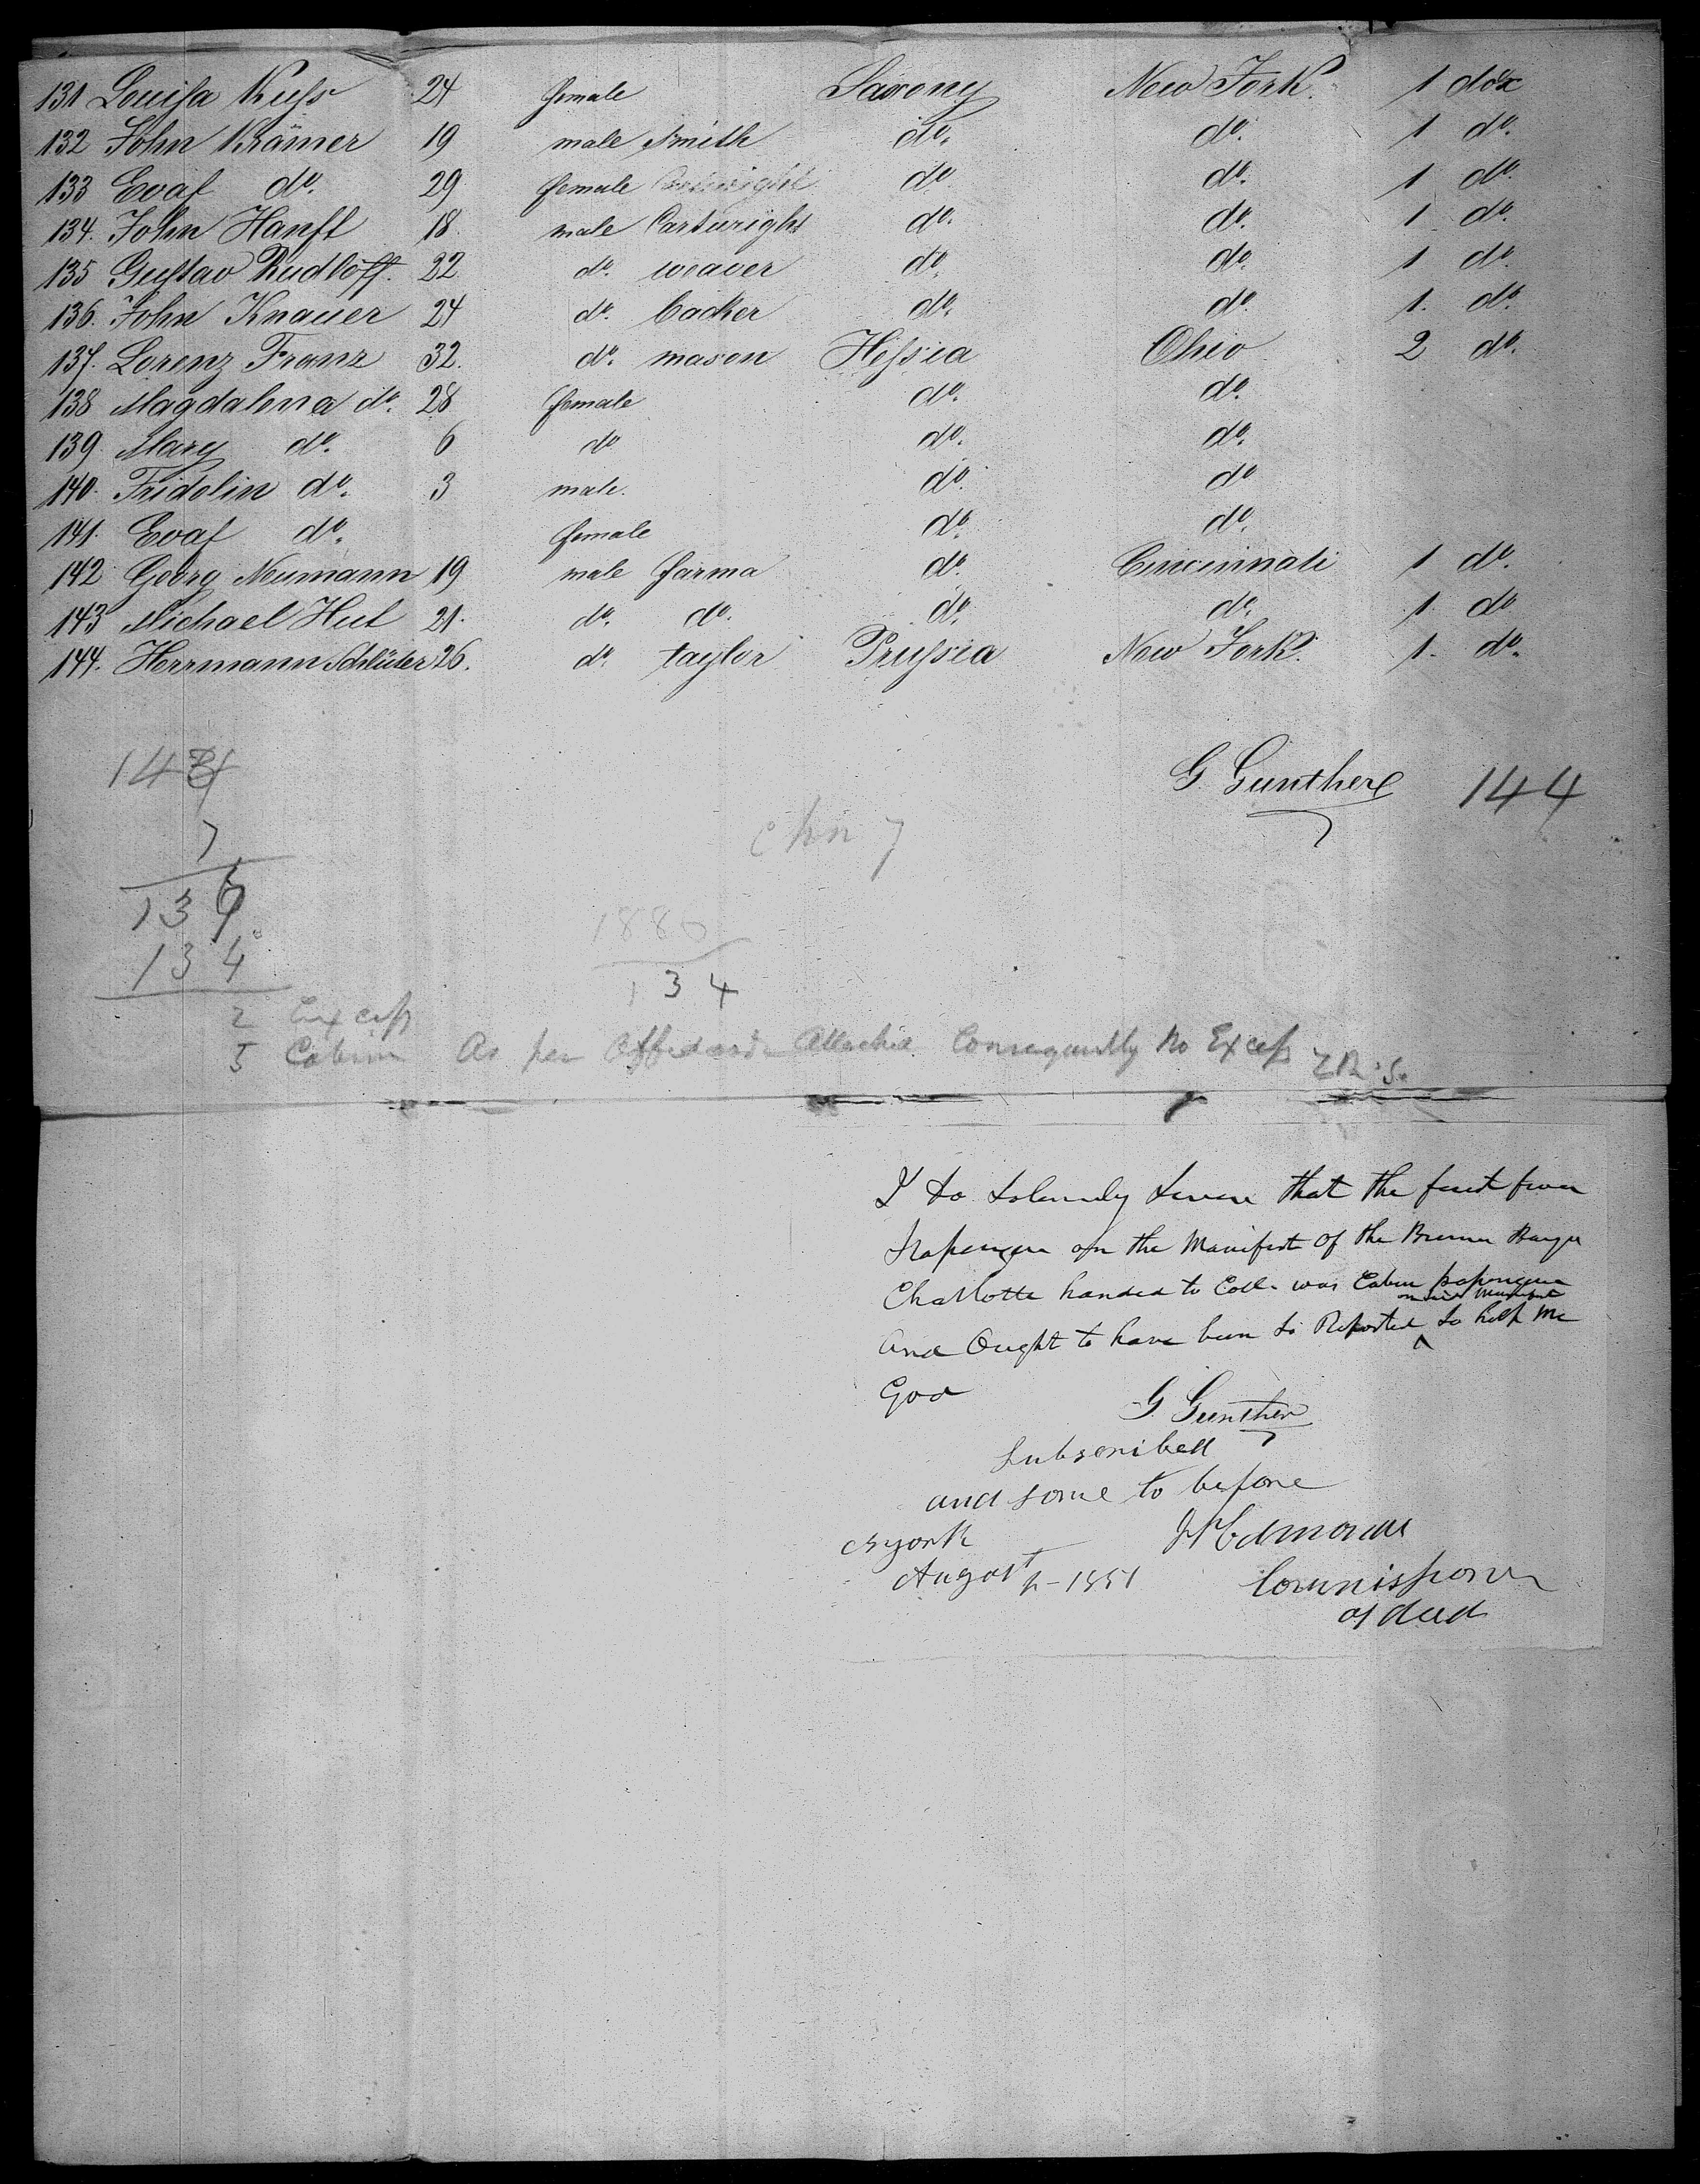 131 Louisa Kuss 24 female Saxony New York. 1 box
132 John Krämer 19 male smith do. do. 1 do.
133 Evat do. 29 female Cartwright do. do. 1 do.
134. John Hanft 18. male Cartwright do. do. 1 do.
135 Gustav Rudloff. 22 do. weaver do. do. 1 do.
136. John Knauer 24 do. backer do. do. 1. do.
137. Lorenz Franz 32. do. mason Hessia Ohio 2 do.
138 Magdalena do. 28 female do. do.
139. Mary do. 6 do do. do.
140. Fridolin do. 3 male. do. do
141. Evat do. female do. do.
142 Georg Neumann 19 male farma do. Cincinnati 1 do.
143 Michael Hut 21. do. do. do. do. 1. do
144. Herrmann Schlüter 26. do. taylor Prussia New York. 1. do.
G. Gunther 144
7
136
134
2 Excess
1886
134
5 Cabin As per Affidavid Attached. Consequently No Excess
I do Solemnly Swear that the first four
Passengers on the Manifest of the Bremer Barque
Charlotte handed to Coll. was Cabin passengers
on said Manifest
And Ought to have been so Reported So help Me
God
G. Gunther
Subscribed
and sorne to before
NYork
August 1851
Commissioner
of deed